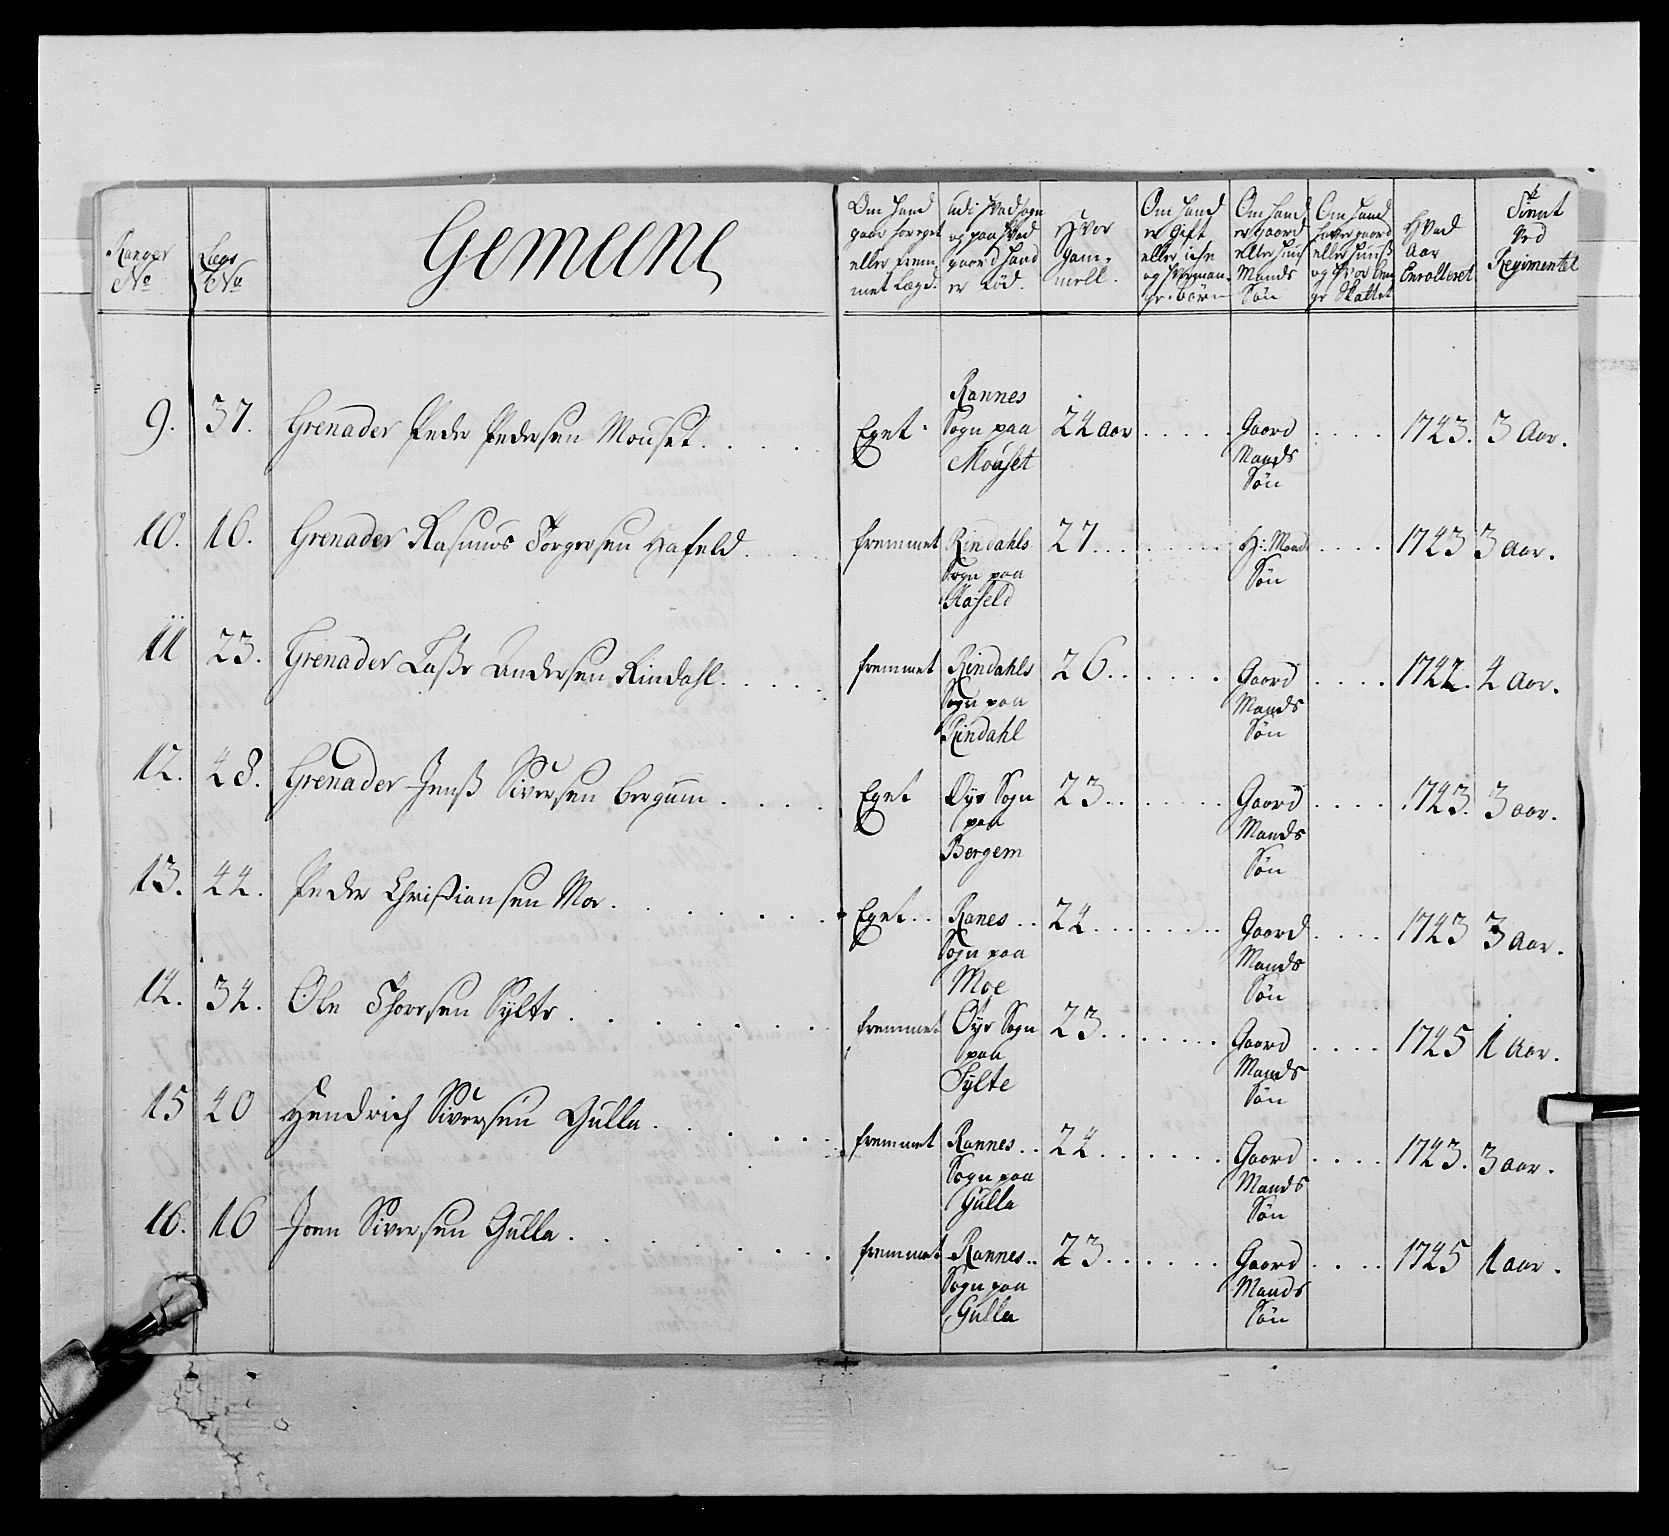 Ranger No | Lægs No | Gemeene | Om hand gaar for eget eller frem met Lægd. | udi hvad sogn og paa hvad gaard hand er Föd. | Hvor Gam- mell. | Om hand er Gift eller iche og hvor man- ge börn | Om hand er Gaard eller huus Mands Søn | Om hand haver gaard eller huuß og hvor len- ge Skattet | Hvad Aar Enrolleret | Tient ved Regimentet
9. | 37. | Grenader Peder Pedersen Mouset. . . . | Eget. | Rannes Sogn paa Mouset | 24 aar | . . . . . | Gaard Mands Søn | . . . . | 1743. | 3 Aar.
10. | 16. | Grenader Rasmus Torgersen Hafeld. . . . | fremmet | Rindahls Sogn paa Hafeld | 27. . . | . . . . . | H: Mand Søn | . . . . | 1743 | 3 aar.
11 | 23. | Grenader Laße Andersen Rindahl. . . . . | fremmet | Rindahls Sogn paa Rindahl | 26. . | . . . . . | Gaard Mands Søn | . . . . | 1742. | 4 Aar.
12. | 48. | Grenader Jenß Siversen Bergum . . . . | Eget | Øye Sogn paa Bergem | 23. . | . . . . . | Gaard Mands Søn | . . . . | 1743. | 3 aar.
13. | 44. | Peder Christiansen Moe . . . . . . . | Eget. . | Ranes . . Sogn paa Moe | 24. . . | . . . . . | Gaard Mands Søn | . . . . | 1743 | 3 Aar.
14. | 34. | Ole Thoresen Sylte . . . . . . . | fremmet | Øye Sogn paa Sylte | 23. . . | . . . . . | Gaard Mands Søn | . . . . | 1745 | 1 Aar.
15 | 40 | Hendrich Siversen Gulla . . . . . . | fremmet | Rannes . . Sogn paa Gulla | 24. . . | . . . . . | Gaard Mands Søn | . . . . | 1743. | 3 aar.
16. | 16 | Joen Siversen Gulla . . . . . . . . | fremmet | Rannes . . Sogn paa Gulla | 23. . . | . . . . . | Gaard Mands Søn | . . . . | 1745 | 1 aar.